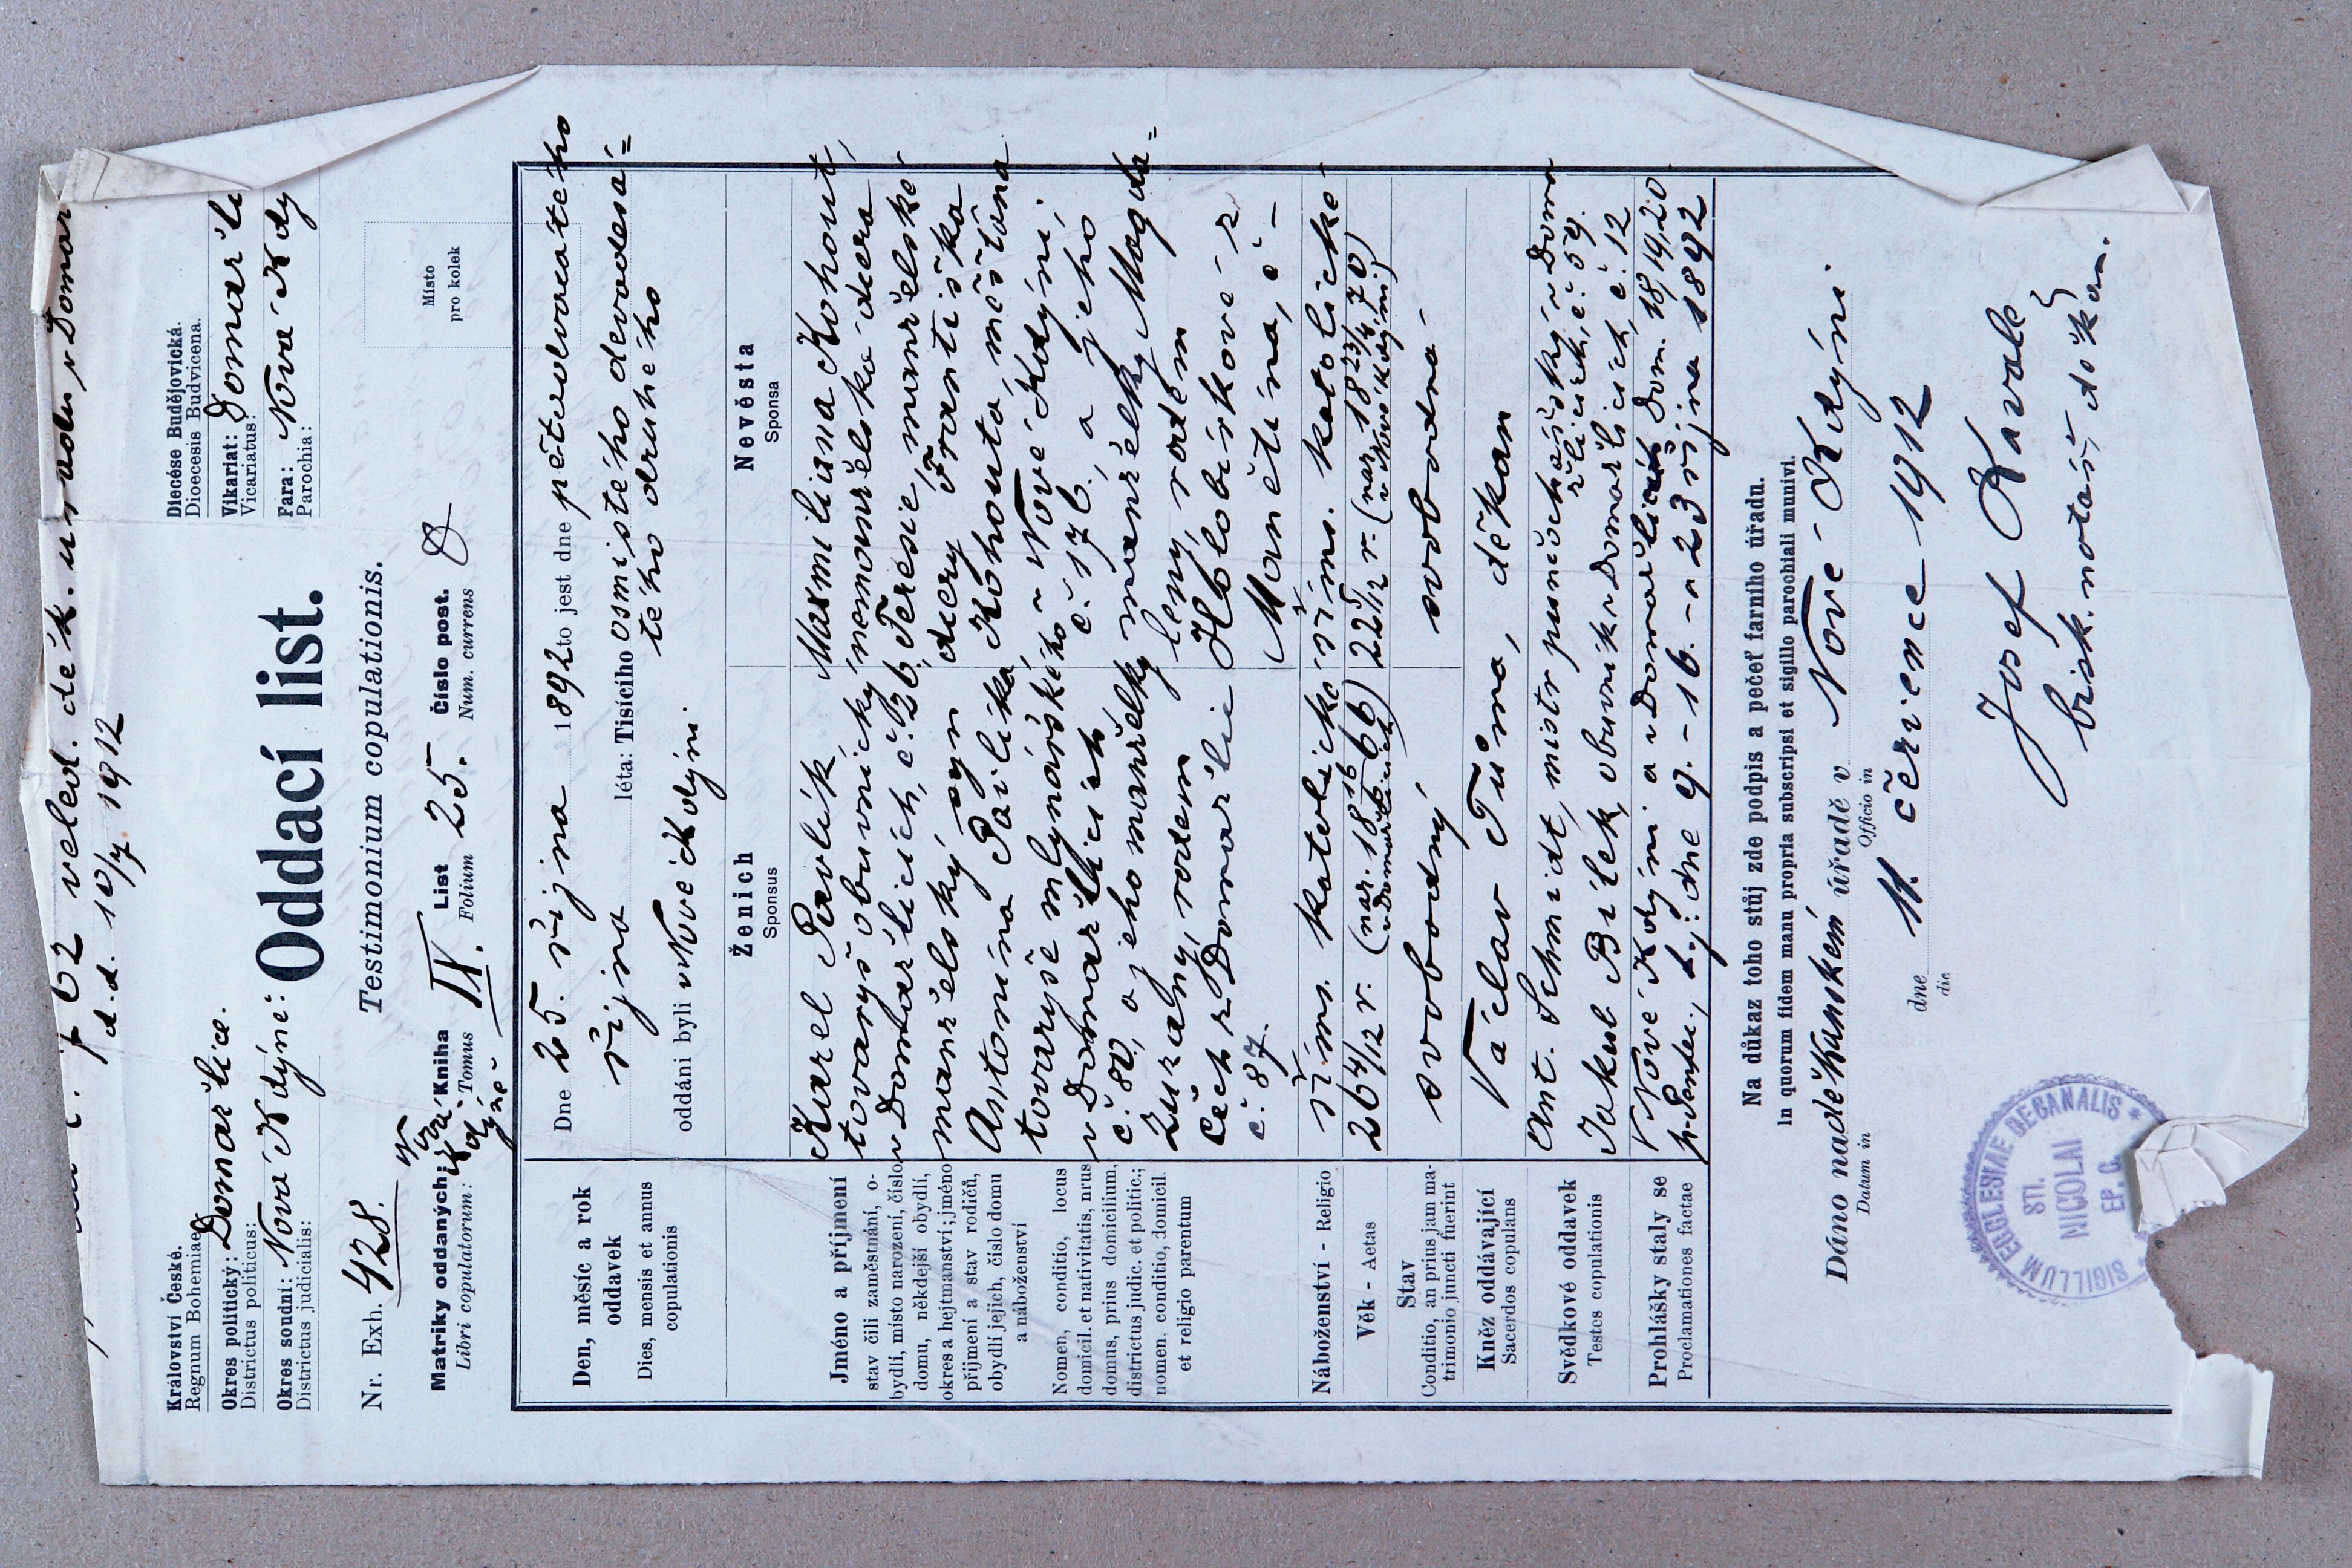 762 veled. děk. úřadu v Domaž
d. d. 10/7 1912
Království České.
Regnum Bohemiae
Okres politický: Domažlice.
Districtus politicus:
Okres soudní: Nová Kdýně:
Districtus judicialis:
Diecése Budějovická.
Dioecesis Budvicena.
Vikariat: Domažli
Vicariatus:
Fara: Nová Kdy
Parochia:
Oddací list.
Testimonium copulationis.
Nr. Exh. 428.
Místo
pro kolek
Matriky oddaných: Kniha IV. List 25. Číslo post.
Libri copulatorum: Tomus Folium Num. currens
Den, měsíc a rok
oddavek
Dies, mensis et annus
copulationis
Dne 25. října 1892 to jest dne pětadvacátého
října léta: Tisícího osmistého devadesá=
tého druhého
oddáni byli v Nové Kdýni
Ženich
Sponsus
Nevěsta
Sponsa
Jméno a příjmení
stav čili zaměstnání, o-
bydlí, místo narození, číslo
domu, někdejší obydlí,
okres a hejtmanství; jméno
příjmení a stav rodičů,
obydlí jejich, číslo domu
a náboženství
Nomen, conditio, locus
domicil. et nativitatis, nrus
domus, prius domicilium,
districtus judic. et politic.;
nomen. conditio, domicil.
et religio parentum
Karel Pavlík,
tovaryš obuvnický
v Domažlicích, č. 26,
manželský syn
Antonína Pavlíka,
tovaryše mlynářského
v Domažlicích
č. 80, a jeho manželky
Zuzany, rodem
Čech z Domažlic
č. 87.
Maxmiliana Kohout,
nemanželská dcera
Teresie, manželské
dcery Františka
Kohouta, měšťana
v Nové Kdýni,
č. 176. a jeho
manželky Magda=
leny, rodem
Holobírkové z
Maněčína, č –
Náboženství - Religio
řím. katolické
řím. katolické
Věk - Aetas
26 4/12 r. (nar. 18 16/6 66)
v Domažlicích
22 5/12 r. (nar. 18 23/4 70)
v Nové Kdýni)
Stav
Conditio, an prius jam ma-
trimonio juncti fuerint
svobodný
svobodná
Kněz oddávající
Sacerdos copulans
Václav Tůma, děkan
Svědkové oddavek
Testes copulationis
Ant. Schmidt, mistr punčochářský v Doma
žlicích, č. 59.
Jakub Bílek, obuvník v Domažlicích, č. 12
Prohlášky staly se
Proclamationes factae
V Nové Kdýni a v Domažlicích Dom. 18 19, 20
p. Pentec., t. j: dne 9. – 16. – a 23 října 1892
Na důkaz toho stůj zde podpis a pečeť farního úřadu.
In quorum fidem manu propria subscripsi et sigillo parochiali munivi.
Dáno na děkanském úřadě v Nové Kdýni
Datum in Officio in
dne 11. července 1912
die
SIGILLUM ECCLESIAE DECANALIS *
STI.
NICOLAI
EP. C.
Josef
bisk. notář, děkan.